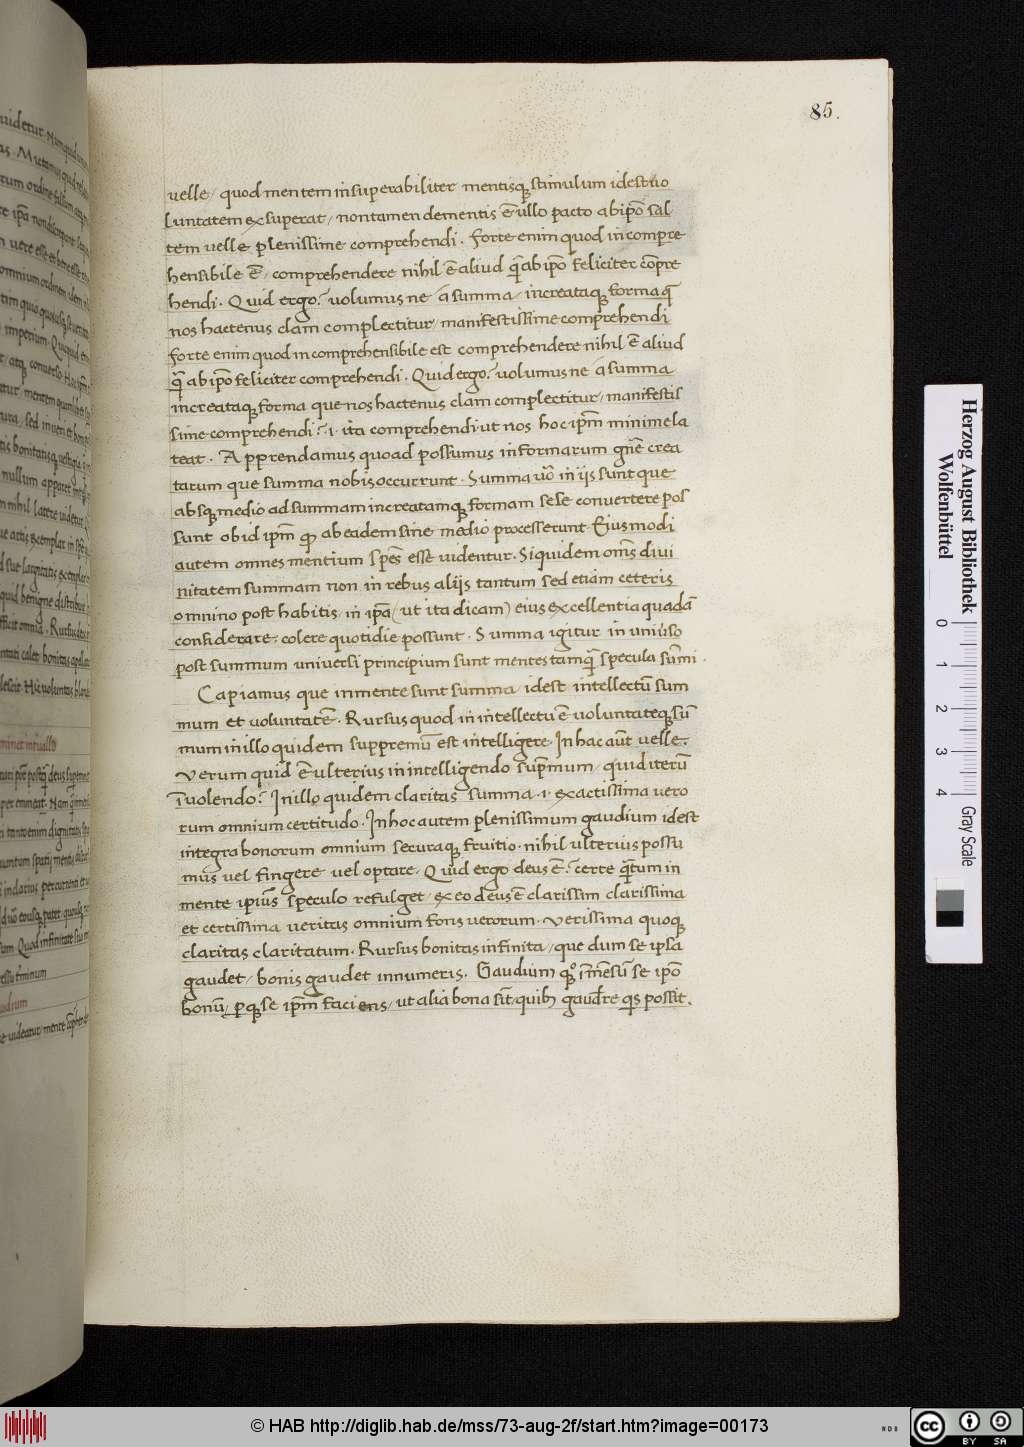 85.
velle, quod mentem insuperabiliter mentisq; stimulum idest uo
luntatem exsuperat, non tamen dementis ē ullo pacto ab ipō sal
tem uelle plenissime comprehendi. Forte enim quod incompre
hensibile ē, comprehendere nihil ē aliud q̄ ab ipō feliciter cōpre
hendi. Quid ergo? uolumus ne a summa, increataq; forma q̄
nos hactenus clam complectitur, manifestissime comprehendi
forte enim quod incomprehensibile est comprehendere nihil ē aliud
q̄ ab ipō feliciter comprehendi. Quid ergo? uolumus ne a summa
increataq; forma que nos hactenus clam complectitur, manifestis
sime comprehendi? .i. ita comprehendi ut nos hoc ipm̄ minime la
teat. Apprendamus quoad possumus in formarum gn̄e crea
tarum que summa nobis occurrunt. Summa uō in iis sunt que
absq; medio ad summam increatamq; formam sese convertere pos
sunt ob id ipm̄ qp ab eadem sine medio processerunt. Eiusmodi
autem omnes mentium spēs esse uidentur. Siquidem om̄s diui
nitatem summam non in rebus aliis tantum sed etiam ceteris
omnino post habitis, in ipā (ut ita dicam) eius excellentia quadā
considerare, colere quotidie possunt. Summa igitur in uniuso
post summum universi principium sunt mentes tamq̄ specula sūmi.
Capiamus que in mente sunt summa, idest intellectū sum
mum et uoluntatē. Rursus quod in intellectu ē uoluntateq; sū
mum in illo quidem suppremū est intelligere. In hac aūt uelle.
Verum quid ē ulterius in intelligendo sup̄mum, quid iterū
ī uolendo? In illo quidem claritas summa .i. exactissima vero
rum omnium certitudo. In hoc autem plenissimum gaudium idest
integra bonorum omnium securaq; fruitio. nihil ulterius possu
mus vel fingere vel optare. Quid ergo deus ē? certe q̄tum in
mente ipius speculo refulget, ex eo deus ē clarissim clarissima
et certissima veritas omnium fons uerorum. Verissima quoq;
claritas claritatum. Rursus bonitas infinita, que dum se ipsa
gaudet, bonis gaudet innumeris. Gaudium īmēsū se ipō
bonū, pq; se ipm̄ faciens, ut alia bona sīt quib; gaudere qs possit.
Herzog August Bibliothek
Wolfenbüttel
0 1 2 3 4
Gray Scale
© HAB http://diglib.hab.de/mss/73-aug-2f/start.htm?image=00173
WDB
cc BY SA